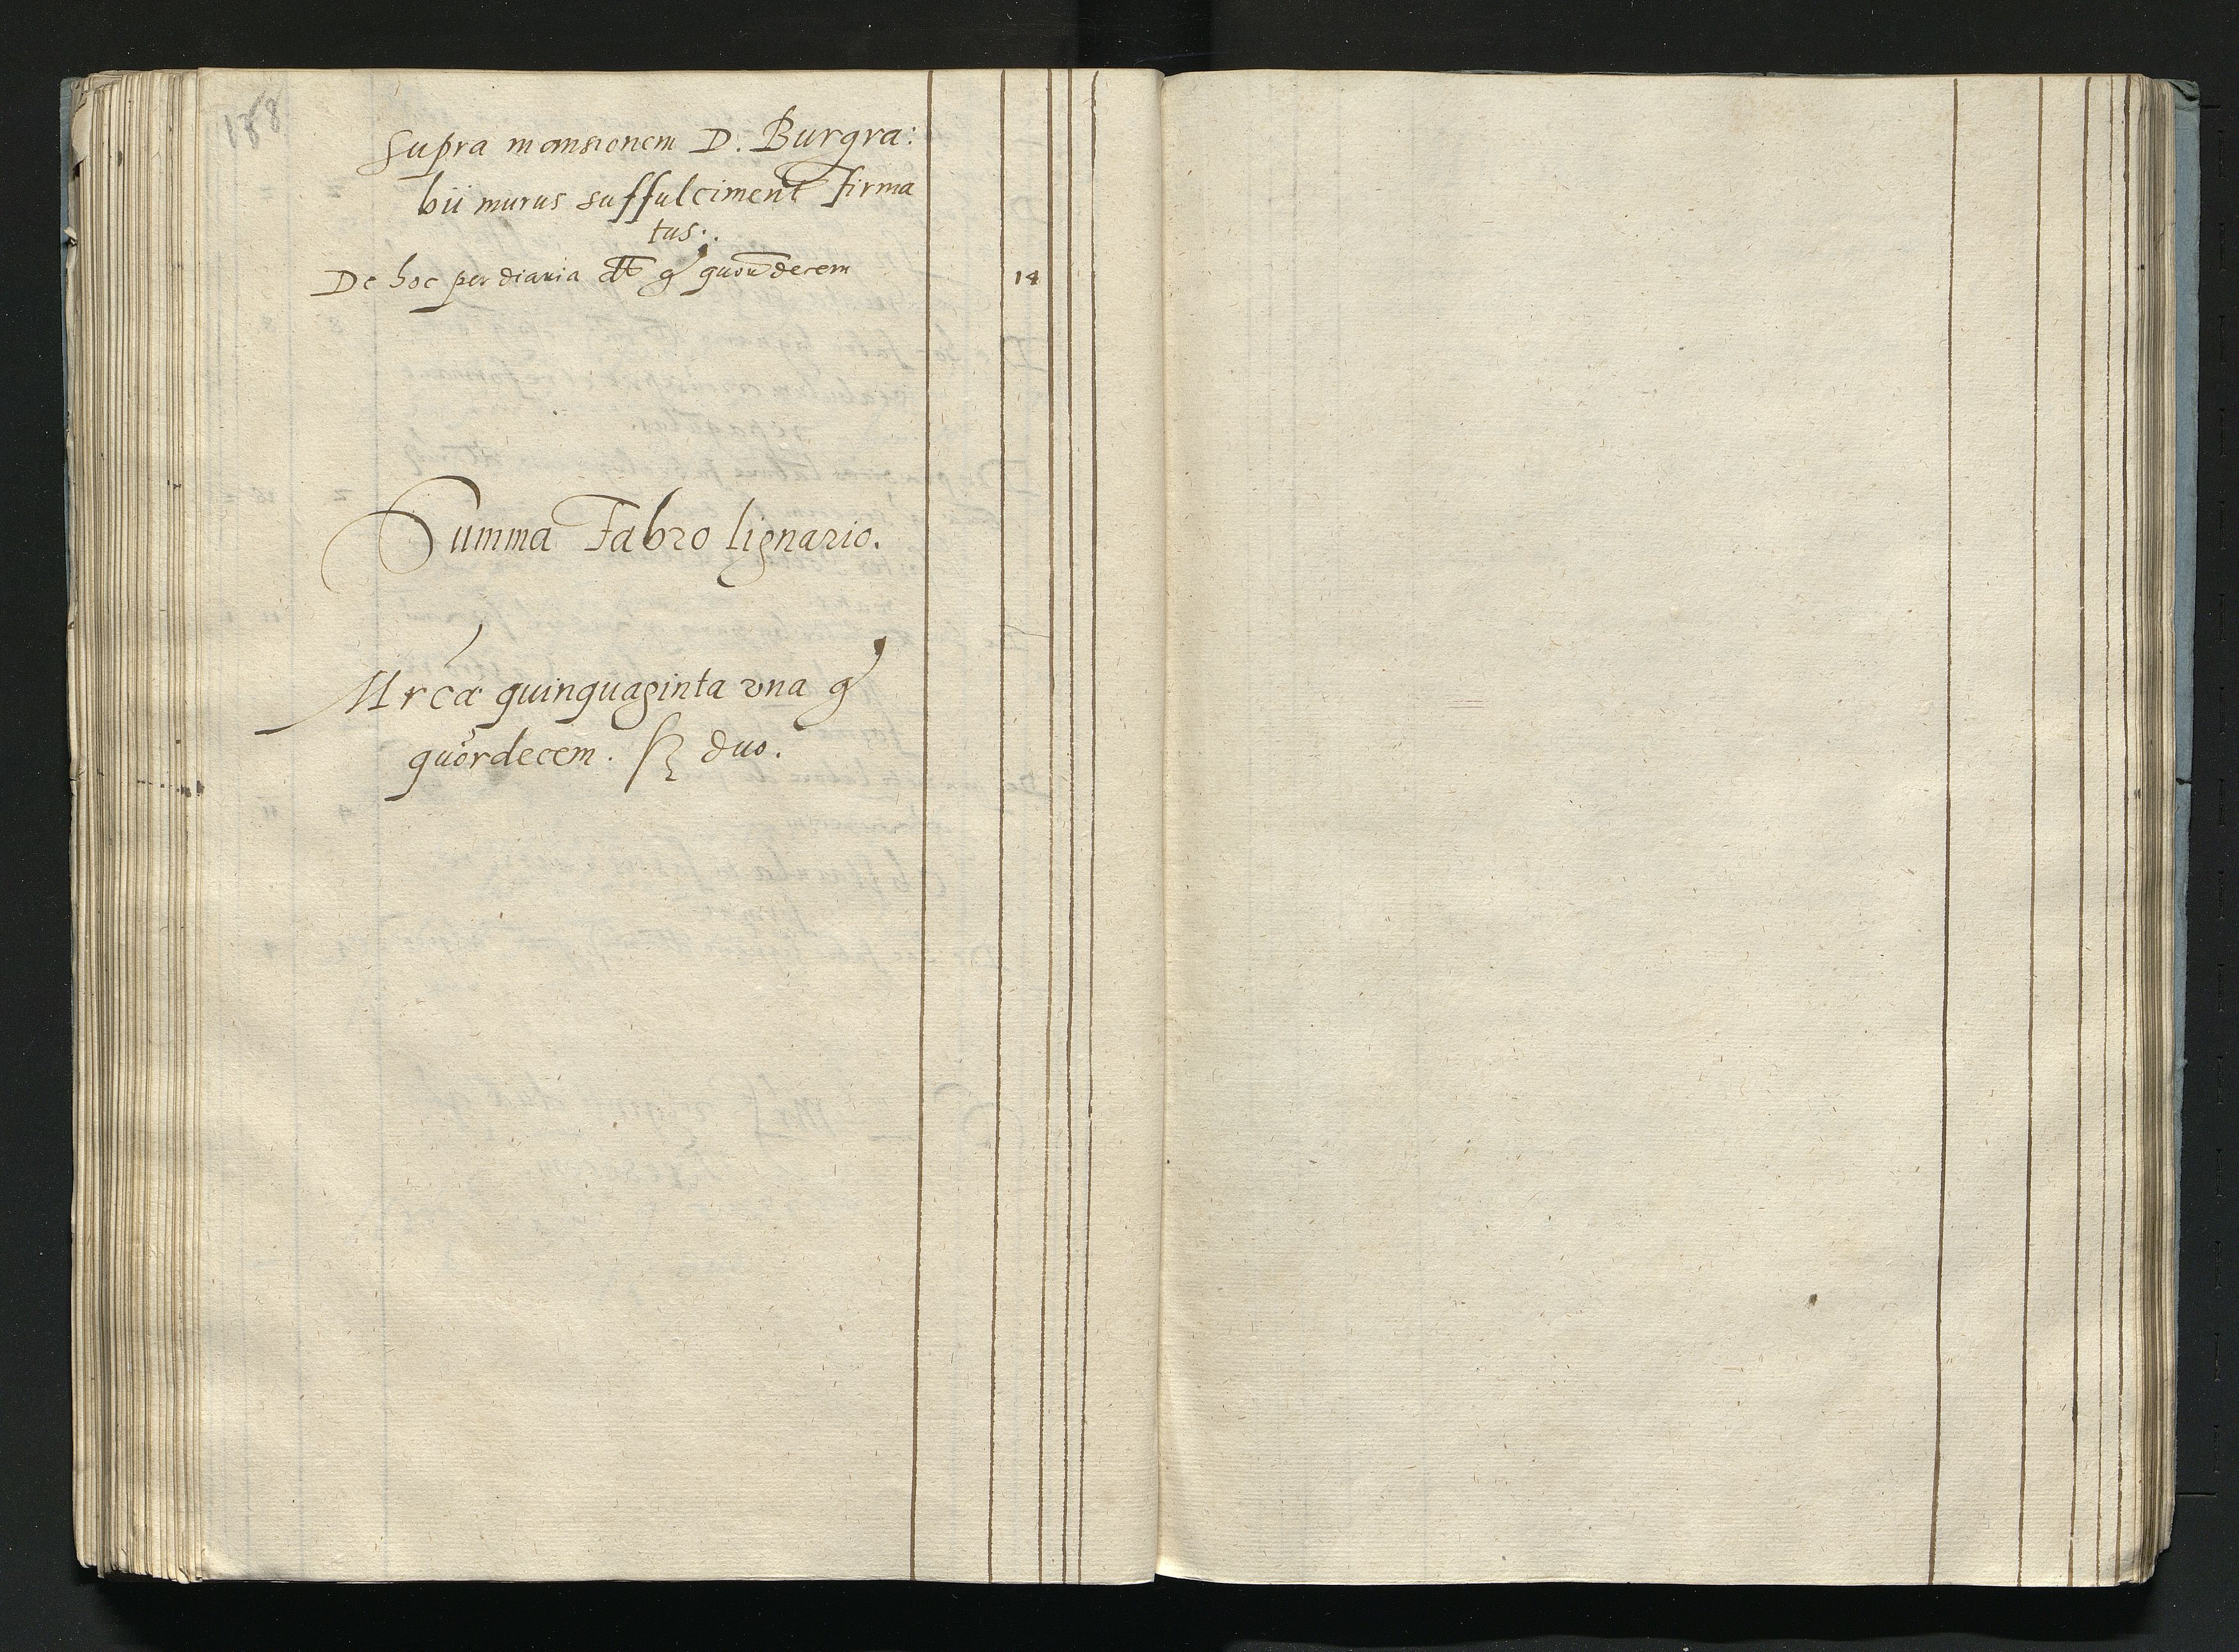 188
Supra mansionem D. Burgra:
bii murus suffulciment firma
tus.
De hoc per diaria dt g quordecem 14
Summa Fabro lignario.
Mrcæ quinquaginta vna g
quordecem. ß duo.